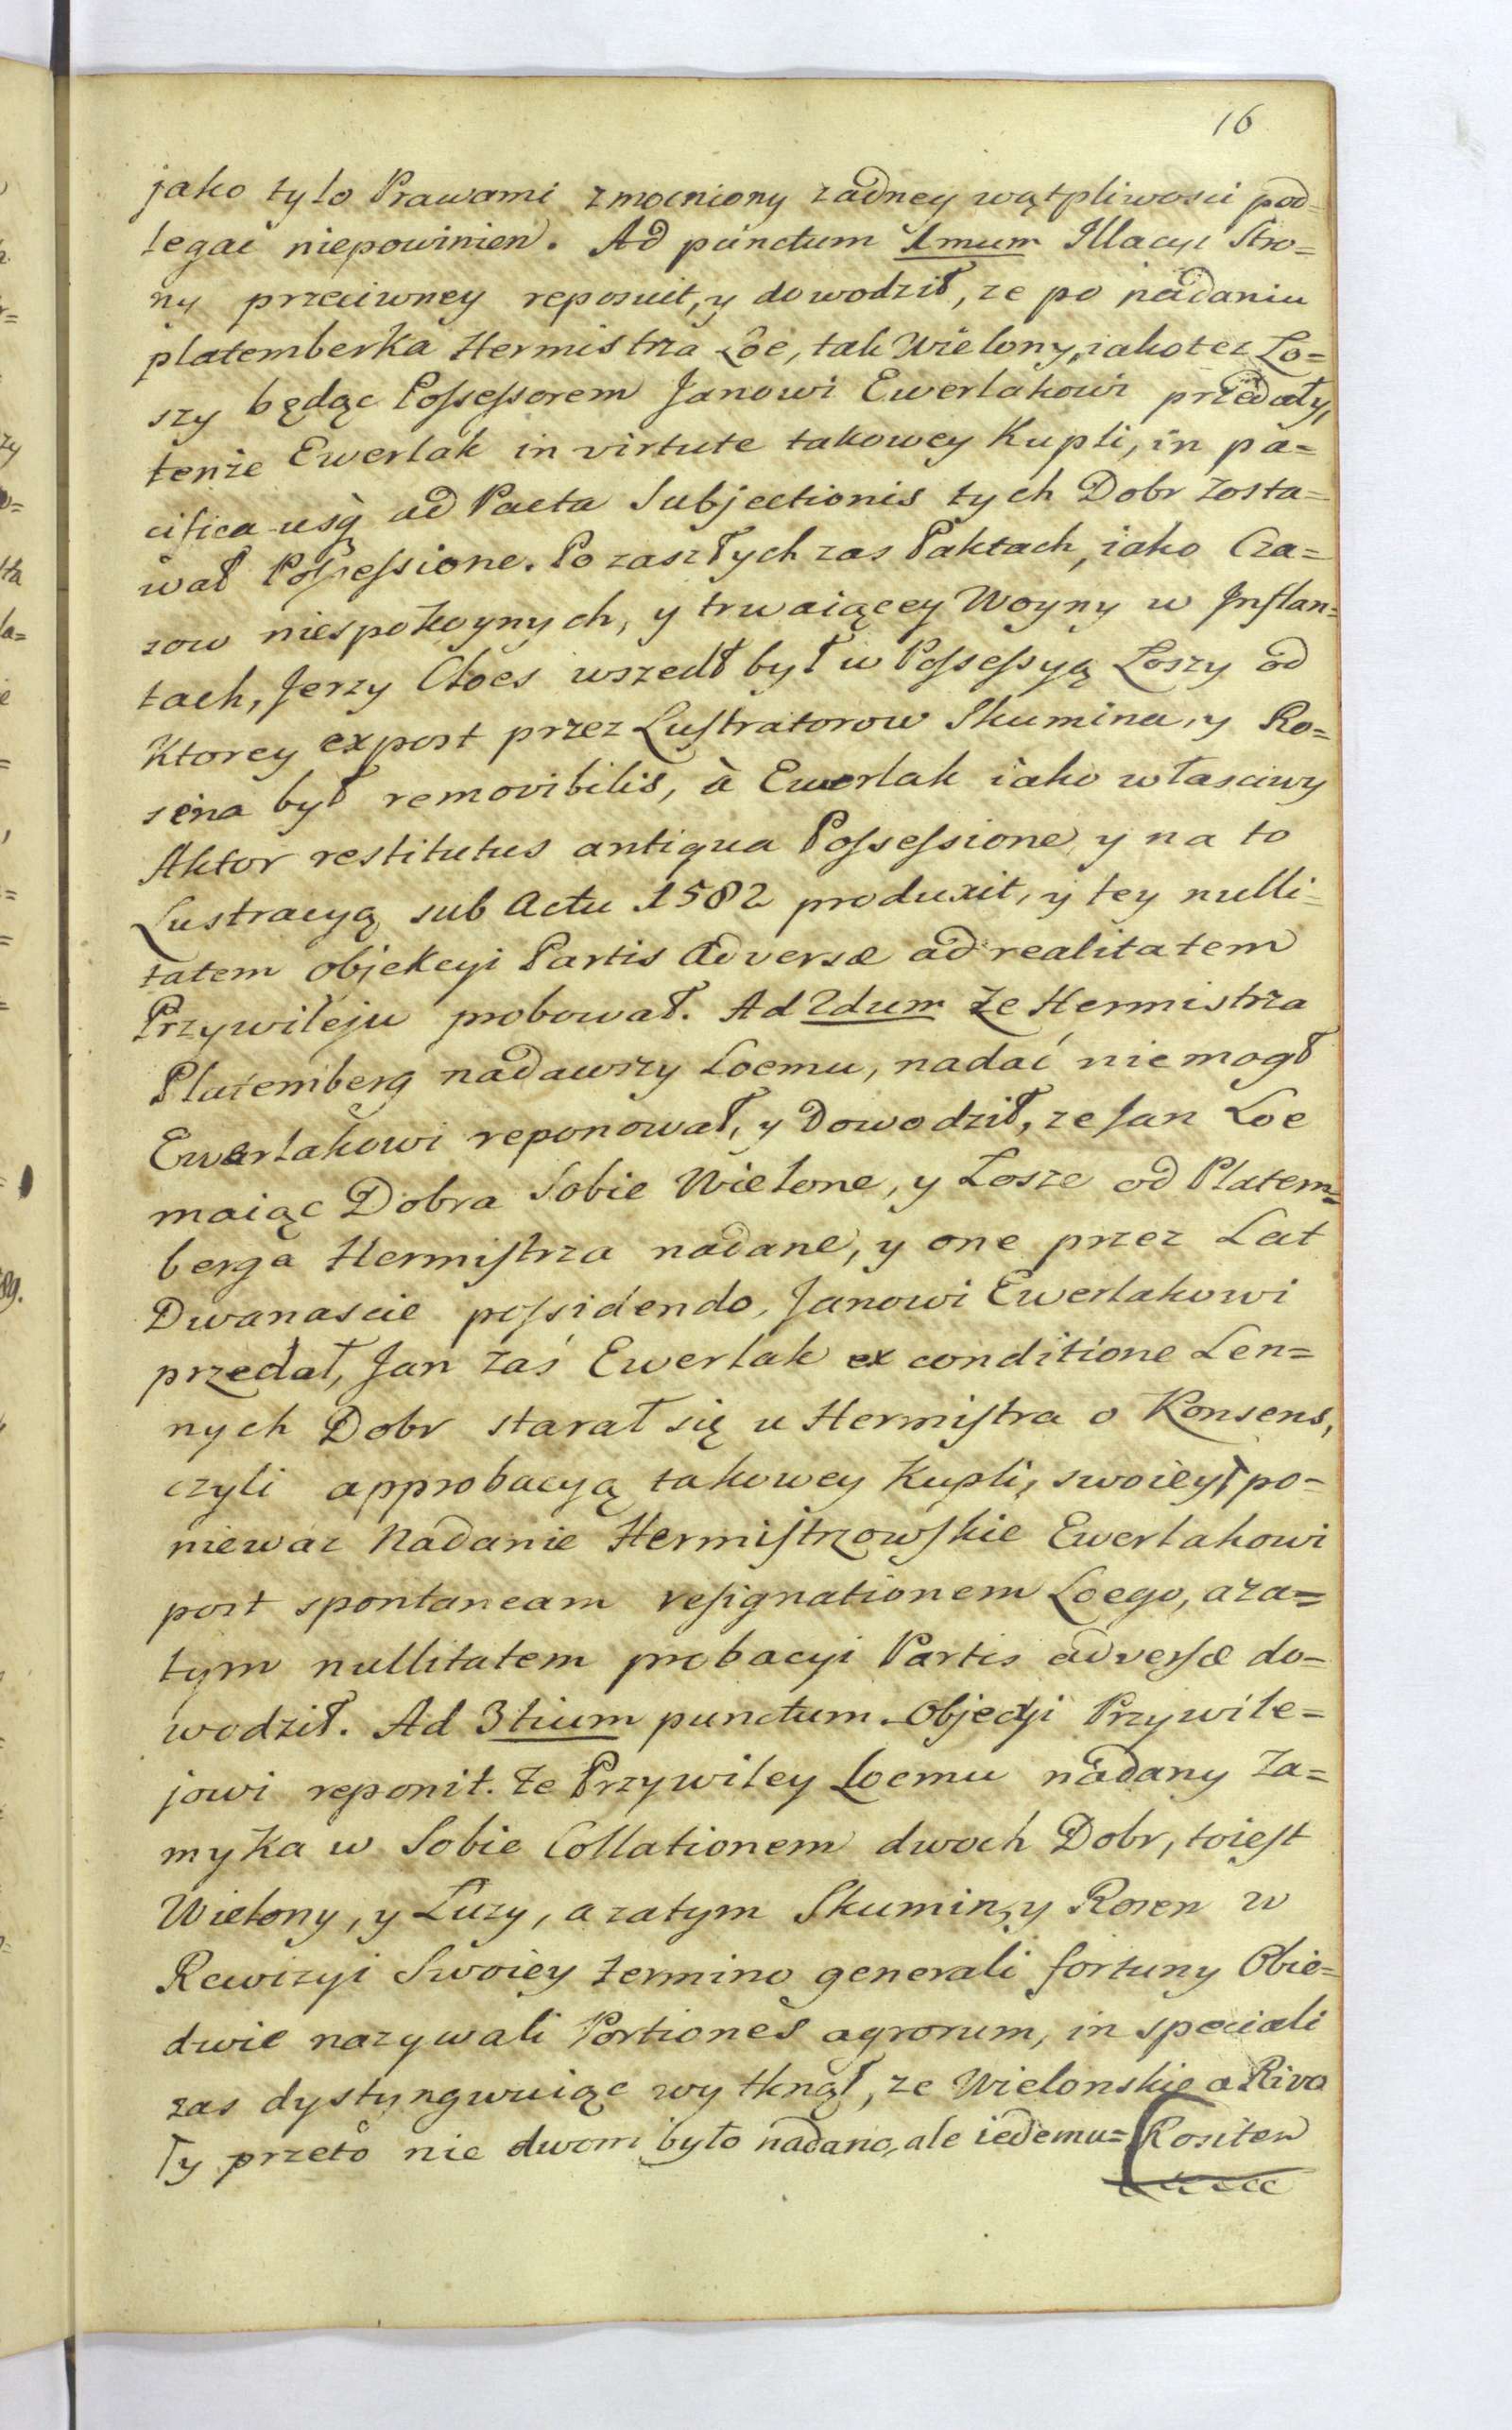 16
jako tylo Prawami zmocniony zadney wątpliwosci pod=
legać niepowinien. Ad punctum 1mum Illacyi Stro=
ny przeciwney reposuit, y dowodził, ze po nadaniu
platemberka Hermistrza Loe, tak Wielony, iakotez Lo=
szy będąc Possessorem Janowi Ewerlakowi przedały,
tenże Ewerlak in virtute takowey Kupli, in pa=
cifica usq ad Pacta Subjectionis tych Dobr zosta=
wał Possessione. Po zaszłych zas Paktach, iako Cza=
sow niespokoynych, y trwaiącey Woyny w Inflan=
tach, Jerzy Cloes wszedł był w Possessyą Loszy od
Ktorey expost przez Lustratorow Skumina, y Ro=
sena był removibilis, à Ewerlak iako własciwy
Aktor restitutus antiqua Possessione y na to
Lustracyą sub Actu 1582 produxit, y tey nulli=
tatem objekcyi Partis Adversæ ad realitatem
Przywileju probował. Ad 2dum Ze Hermistrza
Platemberg nadawszy Loemu, nadać niemogł
Ewerlakowi reponował, y Dowodził, ze Jan Loe
maiąc Dobra Sobie Wielone, y Losze od Platem=
berga Hermistrza nadane, y one przez Lat
Dwanascie possidendo, Janowi Ewerlakowi
przedał, Jan zaś Ewerlak ex conditione Len=
nych Dobr starał się u Hermistra o Konsens,
czyli approbacyą takowey Kupli, swoiey, po=
niewaz Nadanie Hermistrzowskie Ewerlakowi
post spontaneam resignationem Loego, a za=
tym nullitatem probacyi Partis adversæ do=
wodził. Ad 3tium punctum Objecyi Przywile=
jowi reponit. Ze Przywiley Loemu nadany Za=
myka w Sobie Collationem dwoch Dobr, toiest
Wielony, y Luzy, a zatym Skumin, y Rosen w
Rewizyi Swoiey termino generali fortuny Obie=
dwie nazywali Portiones agrorum, in speciali
zas dystyngwuiąc wytknął, ze Wielonskie a Rivo
Ty przeto nie dwom było nadano, ale iedemu= Rositen